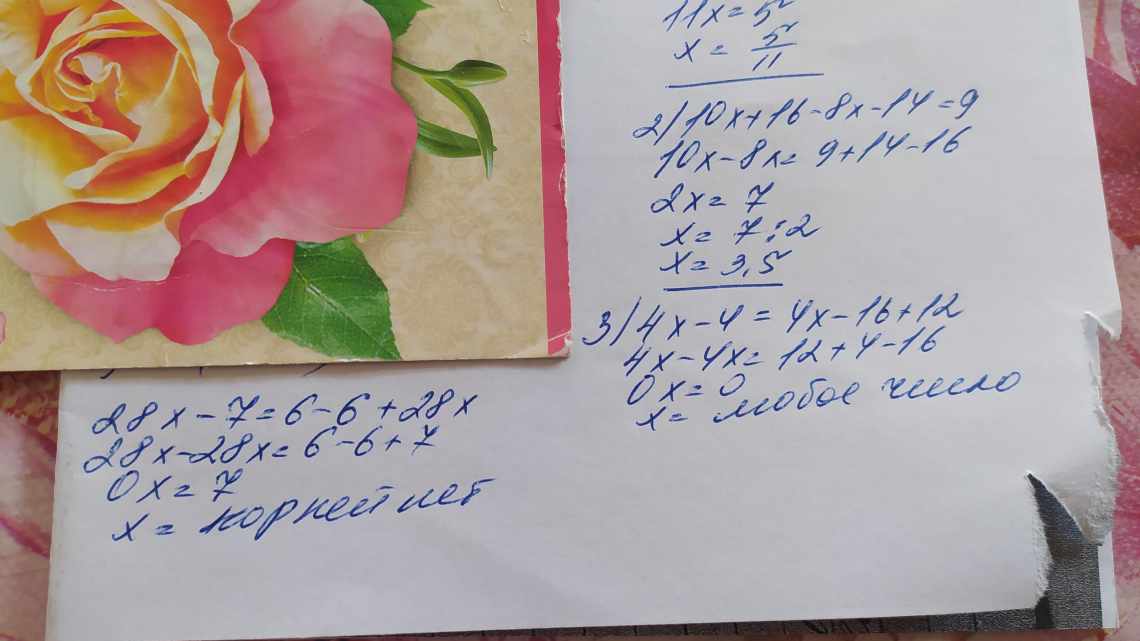 28x-7=6-6+28x
28x-28x=6-6+7
0x=7
x= корней нет
11x=5
x= 5/11
2) 10x+16-8x-14=9
10x-8x=9+14-16
2x=7
x=7:2
x=3,5
3) 4x-4=4x-16+12
4x-4x=12+4-16
0x=0
x= любое число